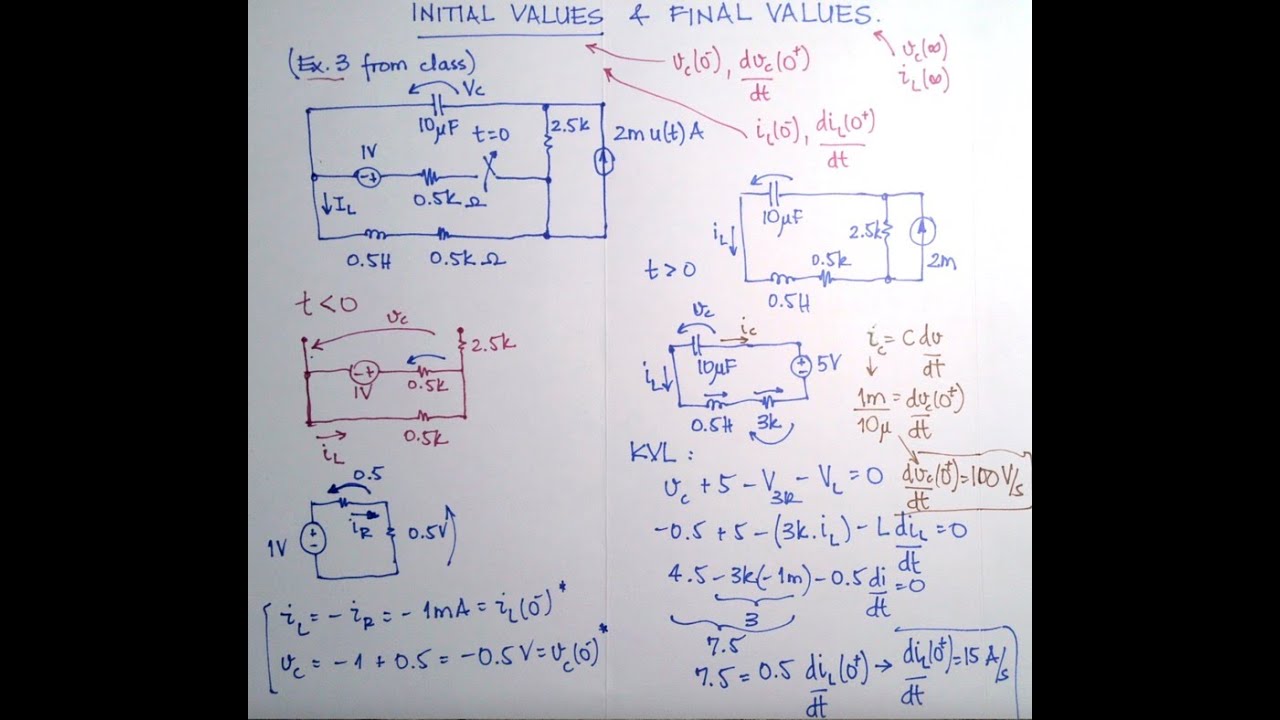 INITIAL VALUES & FINAL VALUES.
(Ex. 3 from class)
v_c(0⁻), dv_c(0⁺)/dt
v_c(∞)
i_L(∞)
i_L(0⁻), di_L(0⁺)/dt
V_c
10μF
t=0
2.5k
2m u(t) A
1V
- +
0.5k Ω
↓ I_L
0.5H
0.5k Ω
10μF
i_L ↓
2.5k
2m
0.5k
0.5H
t > 0
t < 0
v_c
2.5k
- +
1V
0.5k
0.5k
→
i_L
v_c
i_c
10μF
+
-
5V
i_L ↓
0.5H
3k
i_c = C dv/dt
↓
1m/10μ = dv_c(0⁺)/dt
dv_c(0⁺)/dt = 100 V/s
0.5
i_R
1V
+
-
0.5V
i_L = - i_R = - 1mA = i_L(0⁻)*
v_c = -1 + 0.5 = -0.5 V = v_c(0⁻)*
KVL :
v_c + 5 - V_3k - V_L = 0
-0.5 + 5 - (3k. i_L) - L di_L/dt = 0
4.5 - 3k(-1m) - 0.5 di/dt = 0
3
7.5
7.5 = 0.5 di_L(0⁺)/dt → di_L(0⁺)/dt = 15 A/s